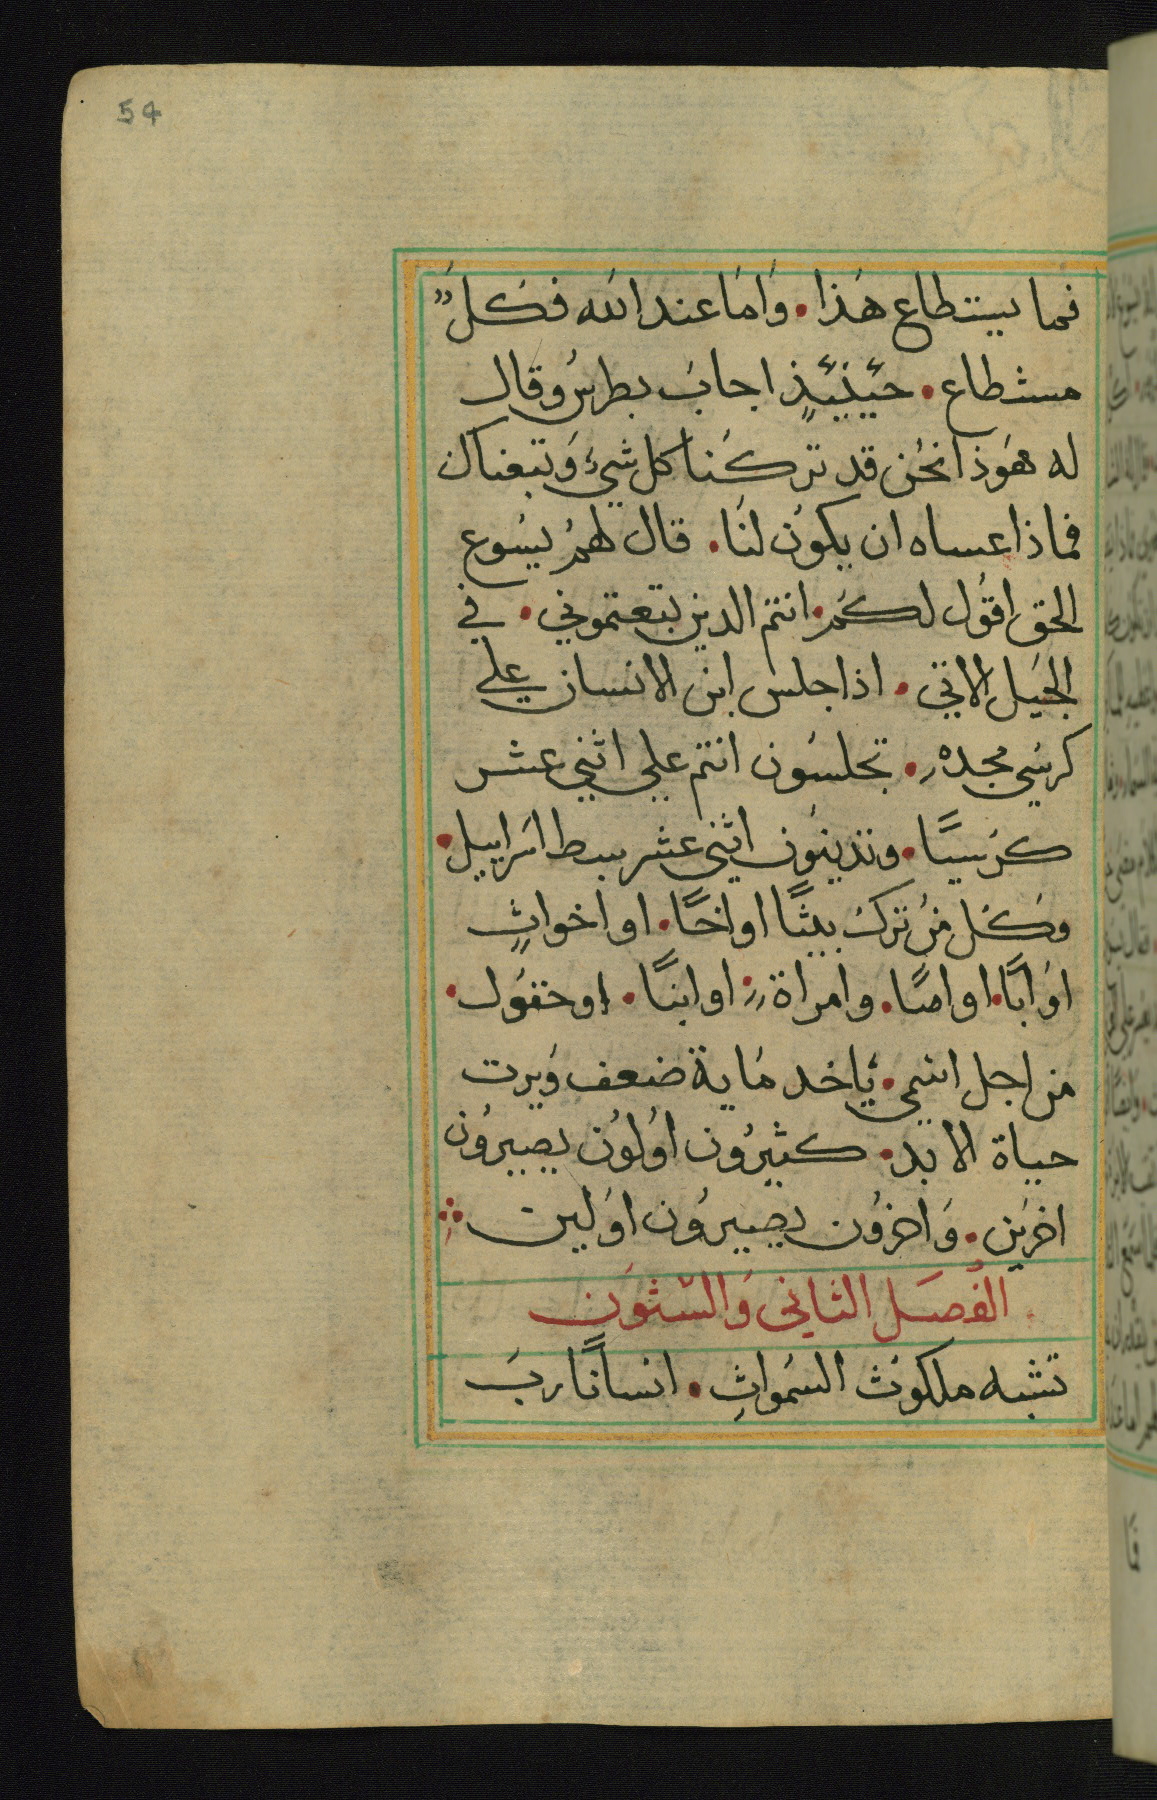 54
فما يستطاع هذا. وَامَا عند الله فكلَ
مستطاع. حئنئذٍ اجابَ بطرسُ وقال
له هوَذا نحُن قد تركنا كل شئ وَتبعناك
فماذا عساه ان يكوُن لنَا. قال لهمُ يسُوع
الحق اقوُل لكمَ. انتم الدين تبعتموني. في
الجيَل الاتي. اذا جلس ابن الانسان علي
كرسي مجده. تجلسُون انتم علي اثني عشر
كرَسيًا. وتدينوُن اثني عشر سبط اسَراييل.
وكَل منُ تركَ بيتًا او اخًا. او اخواتٍ
اوَ ابًا. او امًا. وامراة. او ابنًا. او حقوَل.
من اجل اسمي. ياخد مَاية ضعف وَيرت
حياة الابد. كثيرُون اوُلوُن يصيروُن
اخرَين. وَاخروُن يصيروُن اوَلين
الفُصَل الثاني وَالستوَن
تشبه ملكوَت السَموَاتِ. انسانًا ربَ